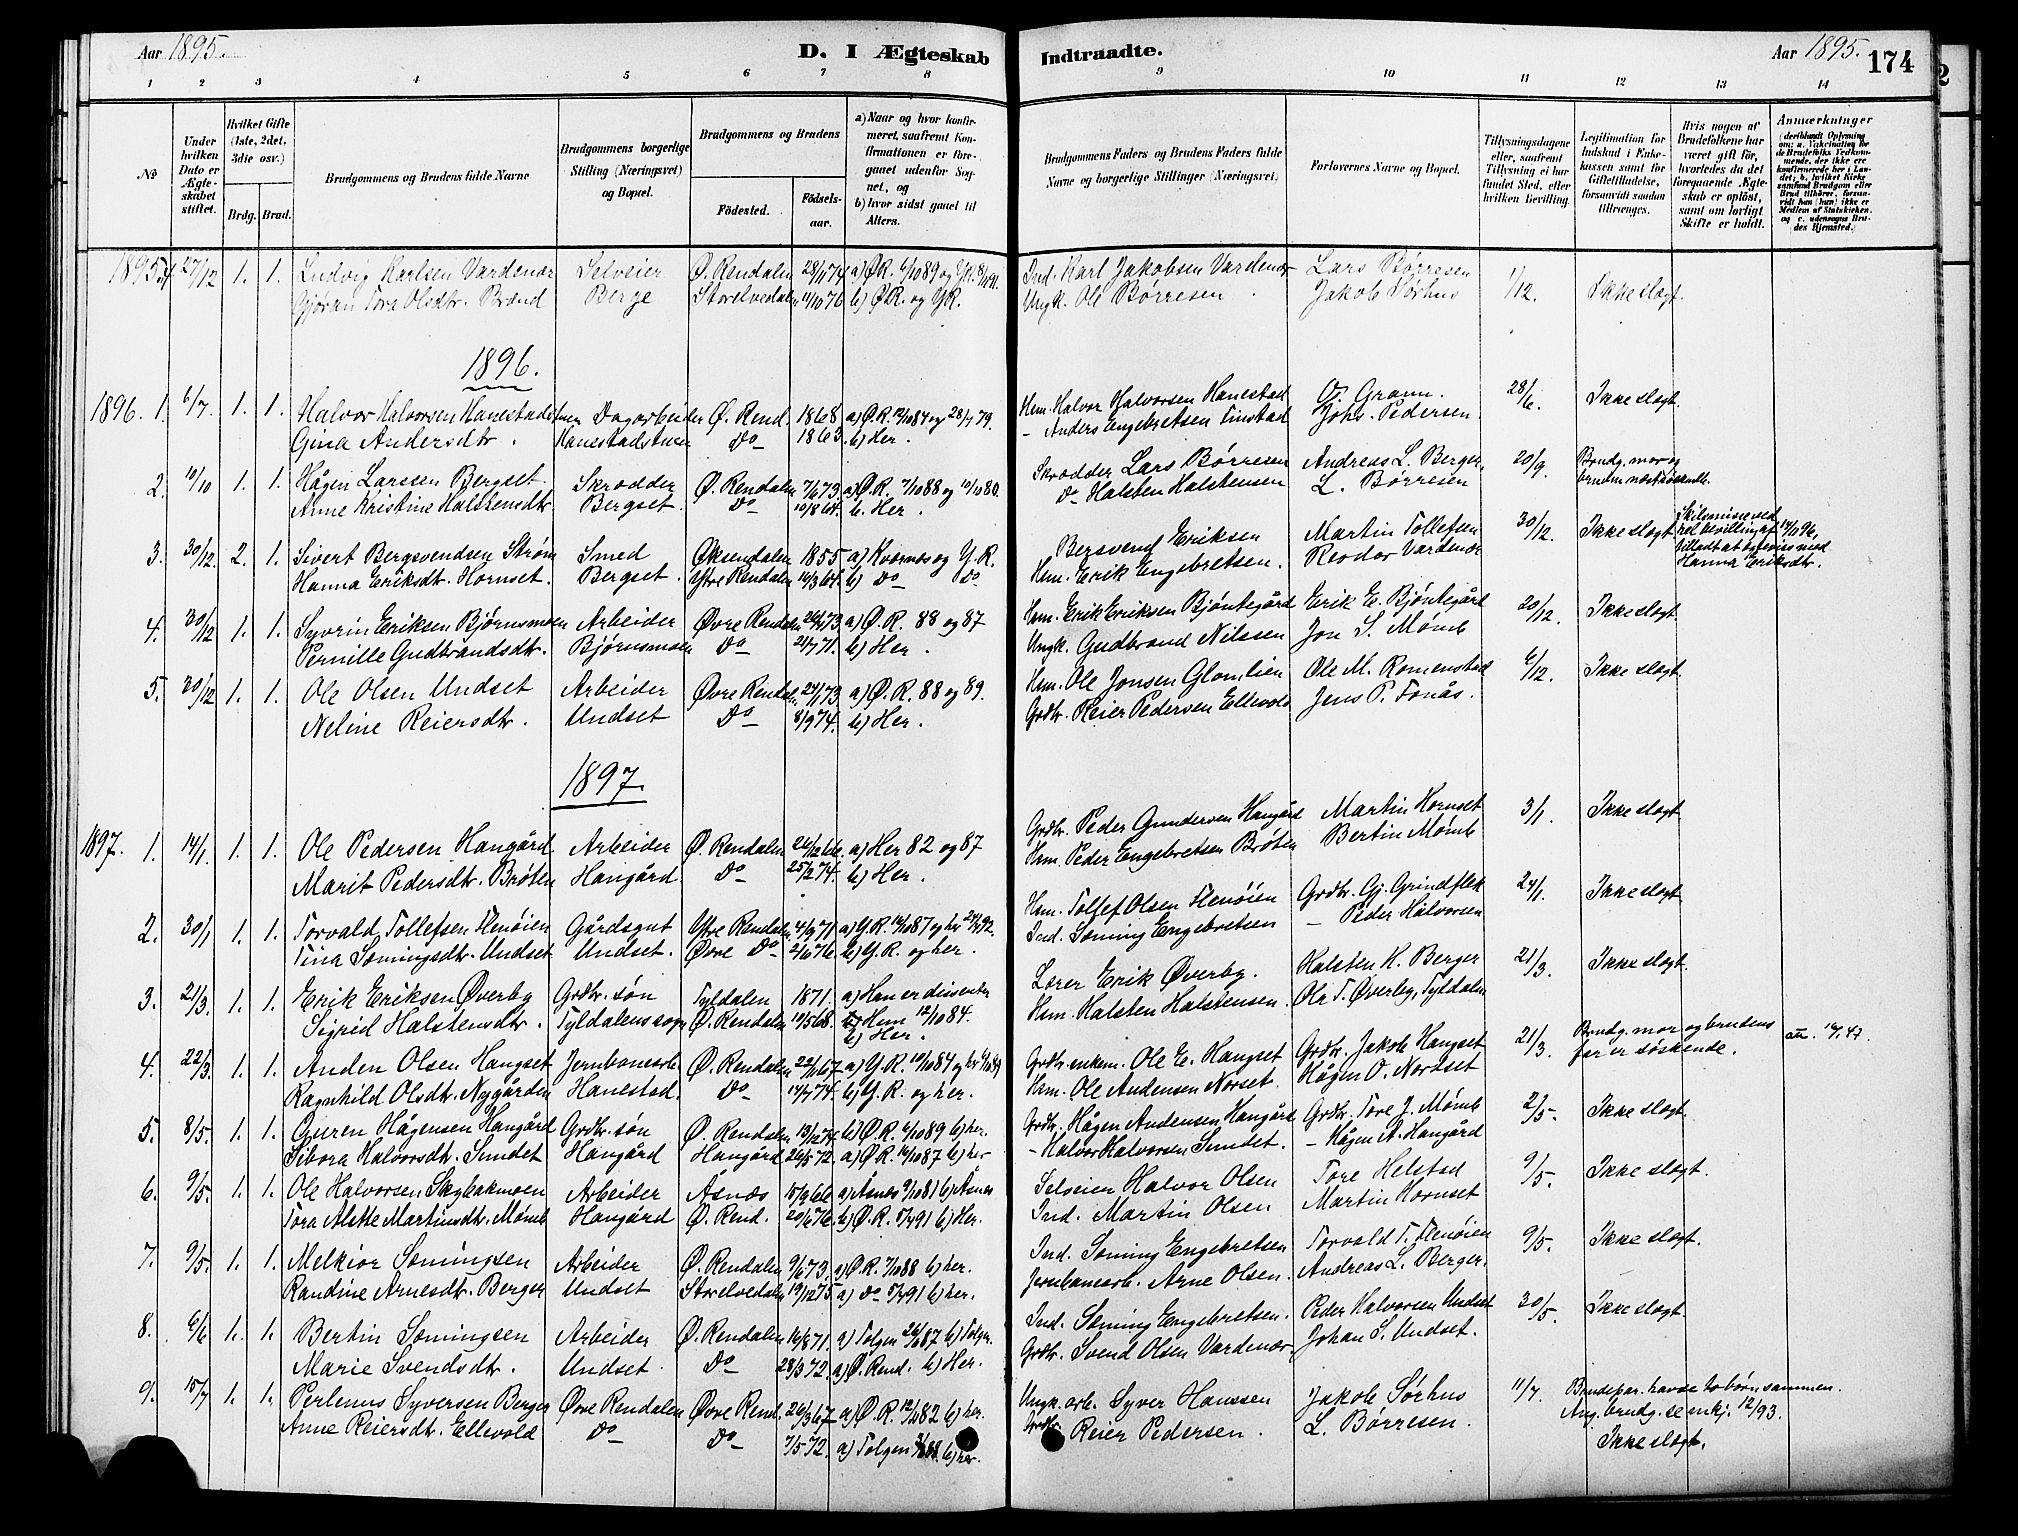 Aar 1895. D. I Ægteskab Indtraadte. Aar 1895. 174
1 2 3 4 5 6 7 8 9 10 11 12 13 14
No
Under hvilken Dato er Ægteskabet stiftet.
Hvilket Gifte (1ste, 2det, 3die osv.)
Brdg. Brud.
Brudgommens og Brudens fulde Navne
Brudgommens borgerlige Stilling (Næringsvei) og Bopæl.
Brudgommens og Brudens
Fødested. Fødselsaar.
a) Naar og hvor konfirmeret, saafremt Konfirmationen er foregaaet udenfor Sognet, og
b) hvor sidst gaaet til Alters.
Brudgommens Faders og Brudens Faders fulde Navne og borgerlige Stillinger (Næringsvei)
Forlovernes Navne og Bopæl.
Tillysningsdagene eller, saafremt Tillysning ei har fundet Sted, efter hvilken Bevilling.
Legitimation for Indskud i Enkekassen samt for Giftetilladelse, forsaavidt saadan tiltrænges.
Hvis nogen af Brudefolkene har været gift før, hvorledes da det foregaaende Ægteskab er opløst, samt om lovligt Skifte er holdt.
Anmærkninger
1895. 27/12 1. 1. Ludvig Karlsen Vardenær Selveier Ø. Rendalen 28/1 74 a) Ø.R. 6/10 89 og Y.R. Ind. Karl Jakobsen Vardenær Lars Børresen 1/12. Ikke slægt.
Gjøran Tora Olsdtr. Brænd Berge Storelvedalen 11/10 76 b) Ø.R. og Y.R. Ungk. Ole Børresen Jakob Sørhus
1896.
1896. 1. 6/7 1. 1. Halvor Halvorsen Hanestadtuen Dagarbeider Ø. Rend. 1868 a) Ø.R. 12/10 84 og 28/9 79. Hsm. Halvor Halvorsen Hanestad O. Gramn. 28/6. Ikke slægt.
Gina Andersdtr. Hanestadtuen Do 1863 b) Her. - Anders Engebretsen Finstad Johs. Pedersen
2. 10/10 1. 1. Hågen Larssen Bergset Skrædder Ø. Rendalen 7/6 73. a) Ø.R. 7/10 88 og 10/10 80. Skrædder Lars Børresen Andreas L. Berger. 20/9. Brudg. mor og
Anne Kristine Halstensdtr. Bergset. Do 10/8 64. b. Her. Do Halsten Halstensen L. Børresen
3. 30/12 2. 1. Sivert Bergsvendsen Strøm Smed Øksendalen 1855 a) Kvernes og Y.R. Bergsvend Eriksen Martin Tollefsen 30/12. Ikke slægt. Skilsmisse ved kgl. bevilling af 14/10 96, tilladt at ægtevies med Hanna Eriksdtr.
Hanna Eriksdtr. Hornset. Bergset. Ytre Rendalen 14/3 64. b) Do Do Hsm. Erik Engebretsen. Reodor Vardenær
4. 30/12 1. 1. Syvrin Eriksen Bjørnsmoen Arbeider Øvre Rendalen a) Ø.R. 88 og 87 Hsm. Erik Eriksen Bjøntegård Erik E. Bjøntegård 20/12. Ikke slægt.
Pernille Gudbrandsdtr. Bjørnsmoen Do 21/7 71. b) Her. Ungk. Gudbrand Nilssen Jon S. Mømb
5. 30/12 1. 1. Ole Olsen Undset Arbeider Øvre Rendalen 24/1 73 a) Ø.R. 88 og 89. Hsm. Ole Jonsen Glomlien Ole M. Romenstad 6/12. Ikke slægt.
Neline Reiersdtr. Undset Do 8/9 74. b) Her. Grdbr. Reier Pedersen Ellevold Jens P. Fonås.
1897.
1897. 1. 14/1. 1. 1. Ole Pedersen Hangård Arbeider Ø. Rendalen 26/12 66. a) Her 82 og 87 Grdbr. Peder Gundersen Hangård Martin Hornset 3/1. Ikke slægt
Marit Pedersdtr. Brøten Hangård. Do 25/2 74. b) Her. Hsm. Peder Engebretsen Brøten Bertin Mømb
2. 30/1 1. 1. Torvald Tollefsen Flenøien Gårdsgut Ytre Rendalen 4/9 71 a) Y.R. 16/10 87 og her 24/4 92. Hsm. Tollef Olsen Flenøien Grdbr. Gj. Grindflek 24/1. Ikke slægt
Tina Sømingsdtr. Undset Undset. Øvre Do 2/6 76. b) Y.R. og her. Ind. Søming Engebretsen - Peder Halvorsen
3. 21/3. 1. 1. Erik Eriksen Øverby Grdbr. søn Tyldalen 1871. a) Han er dissenter Lærer Erik Øverby. Halsten H. Berger 21/3. Ikke slægt.
Sigrid Halstensdtr. Tyldalens sogn Ø. Rendalen 10/5 68. Hun 12/10 84. b) Her. Hsm. Halsten Halstensen. Ole T. Øverby, Tyldalen
4. 22/3. 1. 1. Anden Olsen Hangset Jernbanearb. Ø. Rendalen 22/11 67. a) Y.R. 10/10 84 og her Grdbr. enkem. Ole E. Hangset Grdbr. Jakob Hangset 21/3. Brudg. mor og brudens
Ragnhild Olsdtr. Nygården Hanestad. Do 14/7 74. b) Y.R. og her. Hsm. Ole Andensen Norset. Hågen O. Nordset far er søskende.
5. 8/5. 1. 1. Guren Hågensen Hangård Grdbr. søn Ø. Rendalen 13/12 74. Ø.R. 6/10 89 b) her. Grdbr. Hågen Andensen Hangård Grdbr. Tore J. Mømb 2/5. Ikke slægt
Sibora Halvorsdtr. Sundet Hangård Hangård 26/5 72. a) Ø.R. 16/10 87 b) her - Halvor Halvorsen Sundet. - Hågen A. Hangård
6. 9/5. 1. 1. Ole Halvorsen Skybakmoen Arbeider Åsnæs 15/9 66 a) Åsnæs 9/10 81 b) Åsnæs Selveier Halvor Olsen Tore Helstad 9/5. Ikke slægt.
Tora Alette Martinsdtr. Mømb Hangård Ø. Rend. 20/6 76. Ø.R. 5/7 91 b) Her. Ind. Martin Olsen Martin Hornset
7. 9/5. 1. 1. Melkior Sømingsen Arbeider Ø. Rendalen 9/6 73. a) Ø.R. 7/10 88 b) her. Ind. Søming Engebretsen Torvald T. Flenøien 9/5. Ikke slægt.
Randine Arnesdtr. Berger Undset Storelvedalen 19/12 75. a) Do 5/7 91 b) her. Jernbanearb. Arne Olsen. Andreas L. Berger.
8. 6/6 1. 1. Bertin Sømingsen Arbeider Ø. Rendalen 16/8 71. a) Tolgen 26/6 87 b) Tolgen. Ind. Søming Engebretsen. Peder Halvorsen Undset 30/5. Ikke slægt.
Marie Svendsdtr. Undset. Do 28/3 72. a) Ø. Rend. b) Her. Grdbr. Svend Olsen Vardenær Johan S. Undset.
9. 15/7 1. 1. Perlenus Syversen Berger Øvre Rendalen Øvre Rend. 26/3 67 a) Ø.R. 82 b) her. Ungk. arb. Syver Hanssen Jakob Sørhus 11/7. Brudepar. havde to børn sammen.
Anne Reiersdtr. Ellevold Do Do 7/5 72. a) Tolgen b) her. Grdbr. Reier Pedersen. L. Børresen. Ang. brudg. se 12/93.
Ikke slægt.